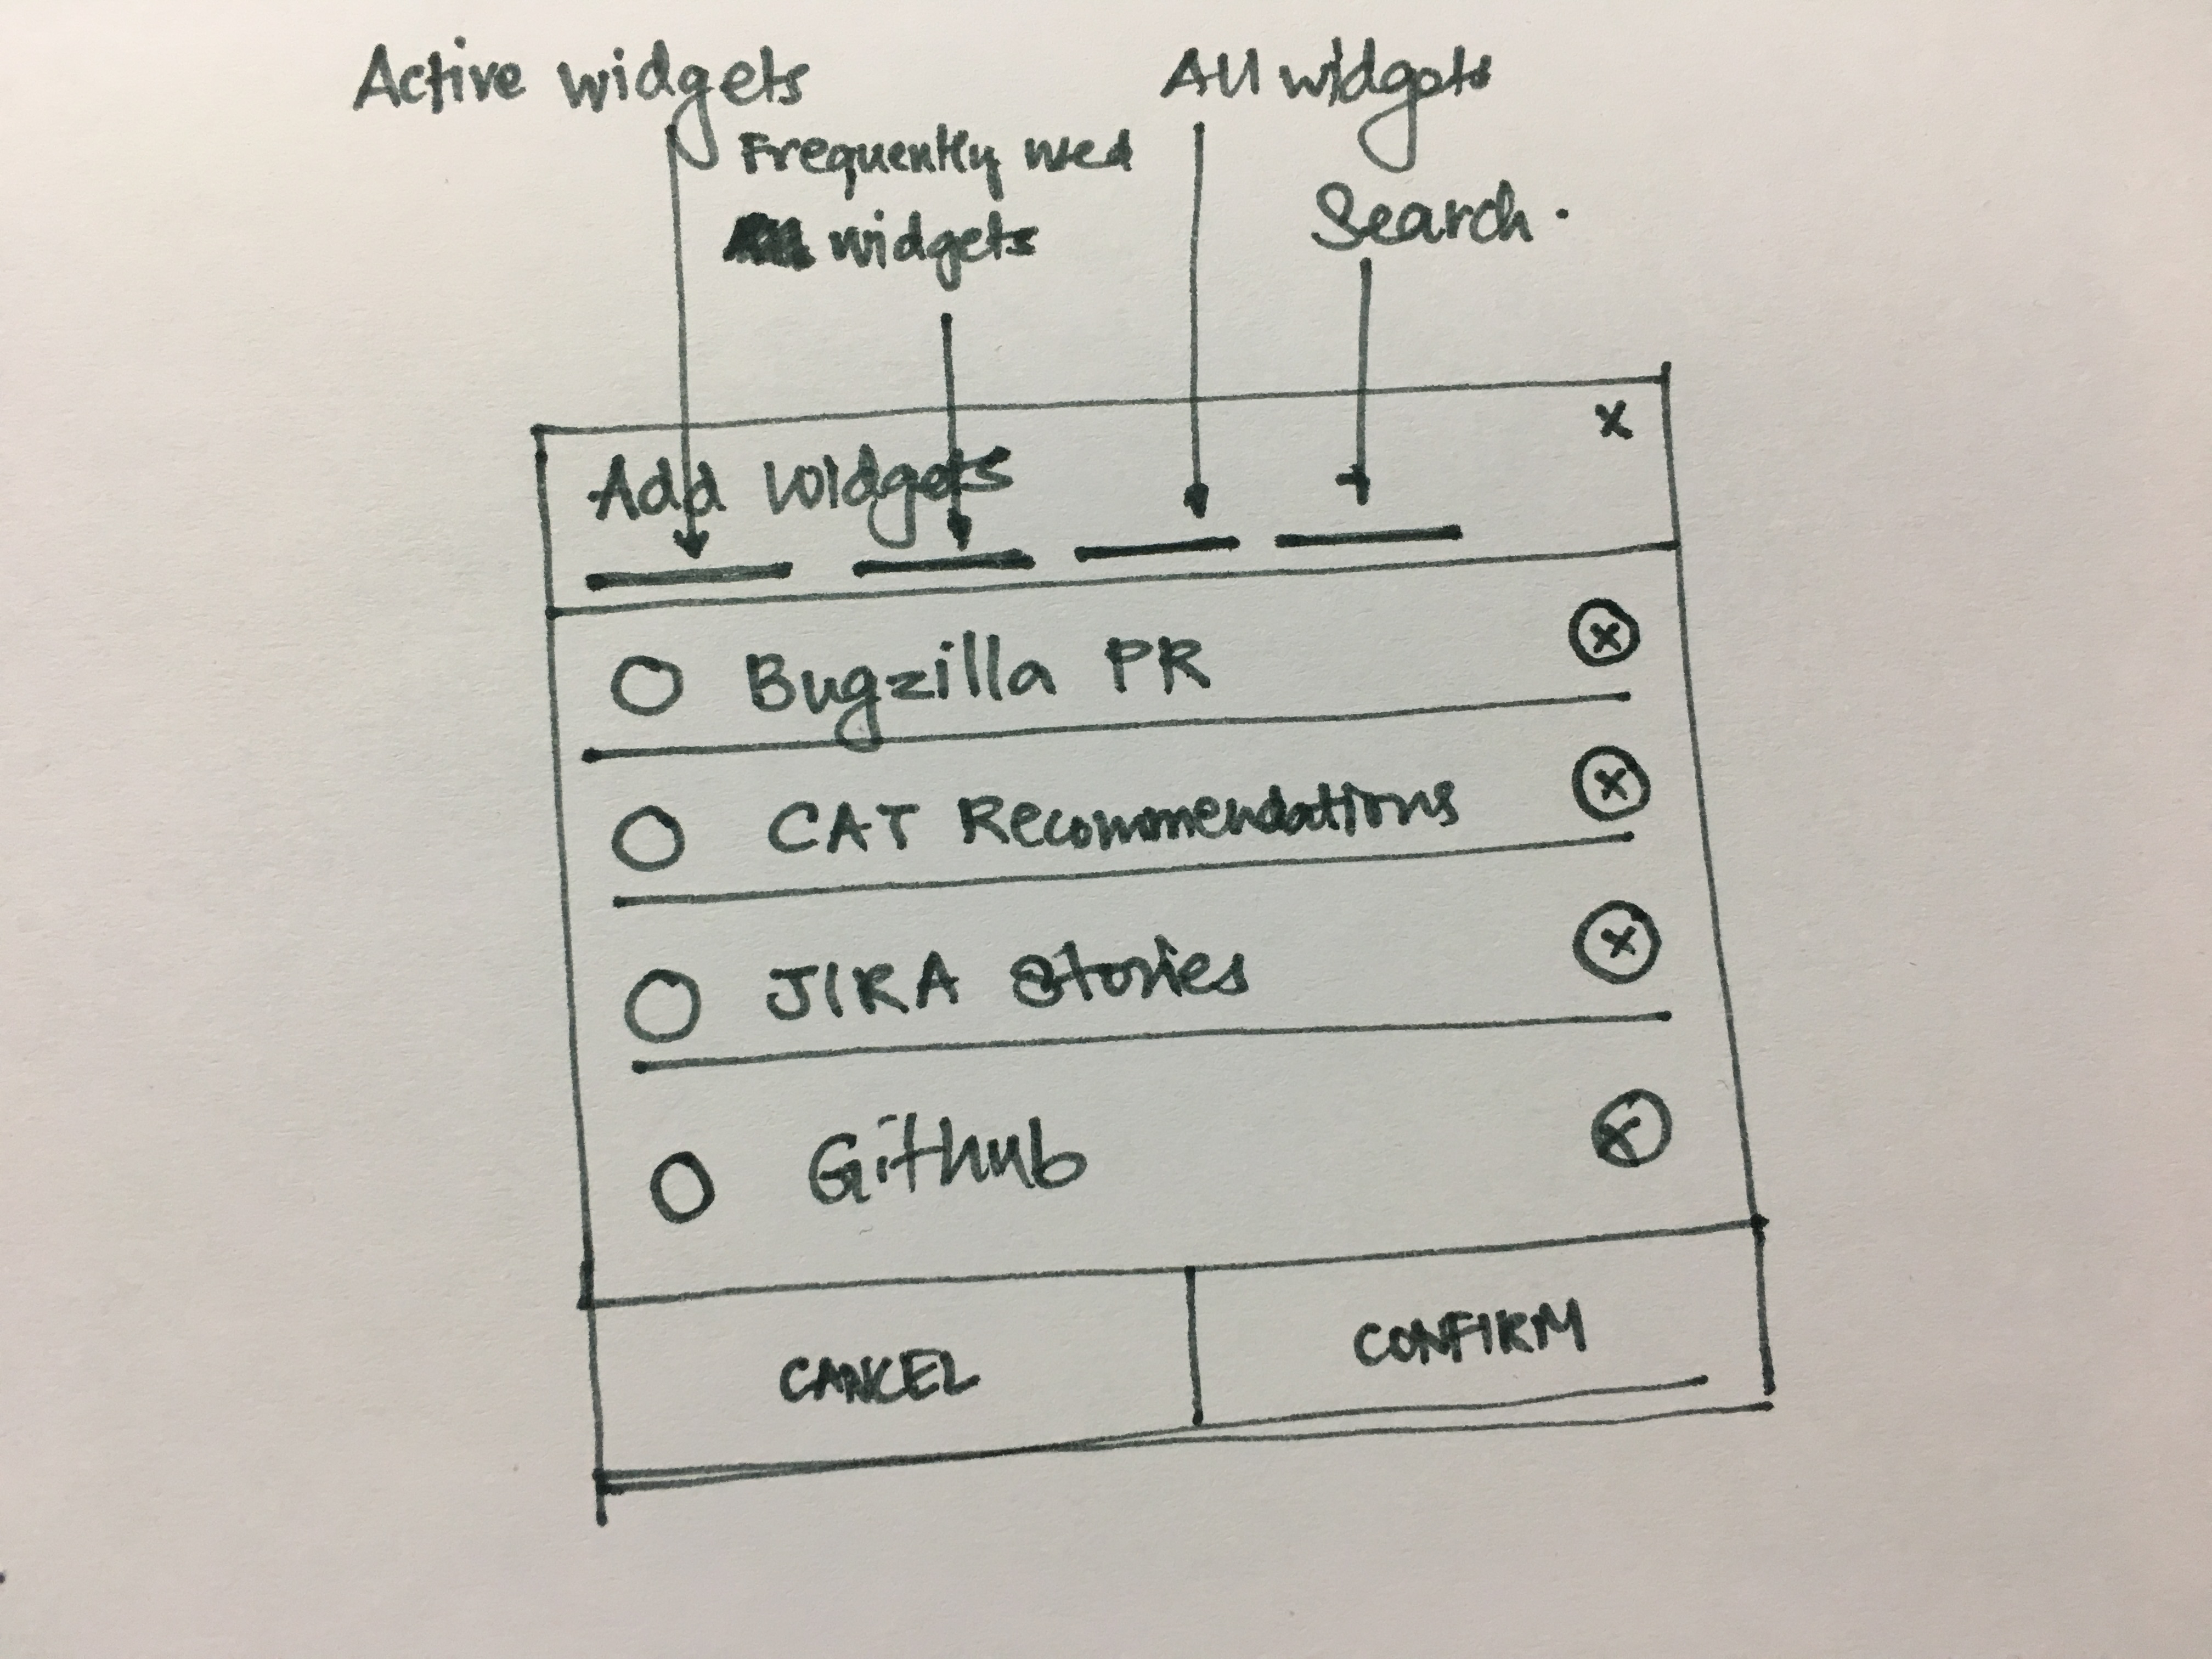 Active widgets
Frequently used
widgets
All widgets
Search.
Add widgets
x
Bugzilla PR
x
CAT Recommendations
x
JIRA Stories
x
Github
x
CANCEL
CONFIRM